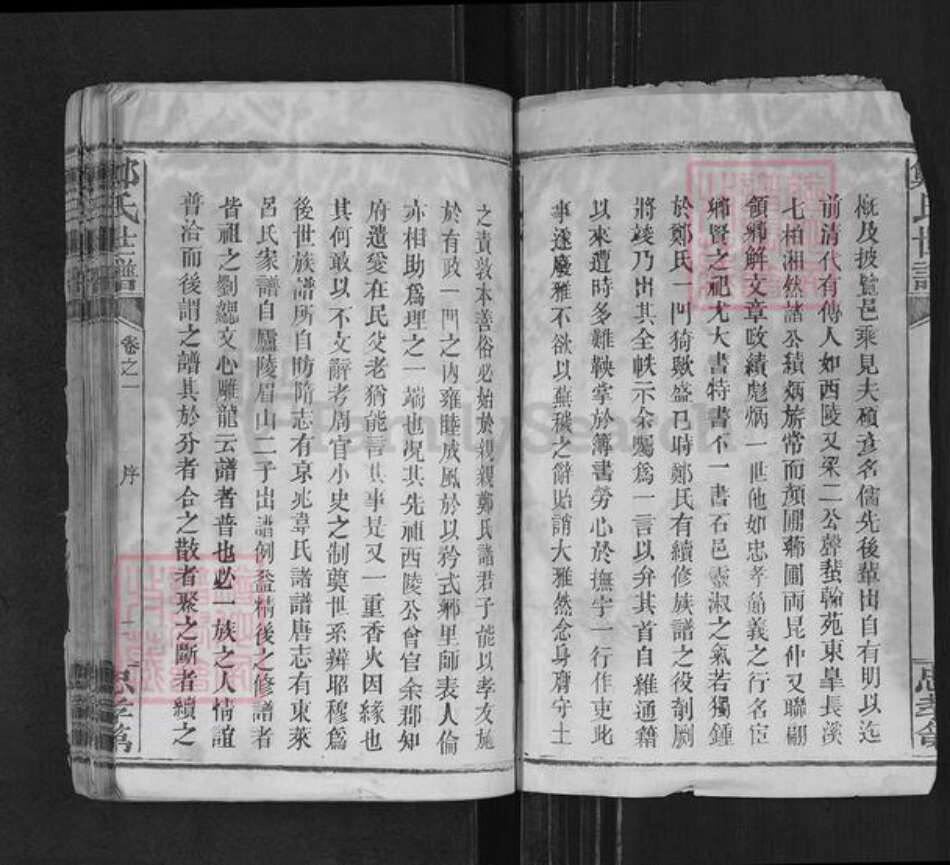 鄭氏世譜
忠孝堂
概及披覽邑乘見夫碩彥名儒先後輩出自有明以迄
前清代有傳人如西陵又梁二公聲蜚翰苑東皋長溪
七柏湘然諸公績炳旂常而顏圃藥圃両昆仲又聯翩
領鄉解文章政績彪炳一世他如忠孝節義之行名宦
鄉賢之祀尤大書特書不一書石邑靈淑之氣若獨鍾
於鄭氏一門猗歟盛已時鄭氏有續修族譜之役剞劂
將竣乃出其全帙示余囑爲一言以弁其首自維通籍
以來遭時多難鞅掌於簿書勞心於撫字一行作吏此
事遂廢雅不欲以蕪穢之辭貽誚大雅然念身膺守土
之責敦本善俗必始於親親鄭氏諸君子能以孝友施
於有政一門之內雍睦成風於以矜式鄉里師表人倫
亦相助爲理之一端也况其先祖西陵公曾官余郡知
府遺愛在民父老猶能言其事是又一重香火因緣也
其何敢以不文辭考周官小史之制奠世系辨昭穆爲
後世族譜所自昉隋志有京兆韋氏諸譜唐志有東萊
呂氏家譜自廬陵眉山二子出譜例益精後之修譜者
皆祖之劉勰文心雕龍云譜者普也必一族之人情誼
普洽而後謂之譜其於分者合之散者聚之斷者續之
鄭氏世譜
卷之一
序
忠孝堂